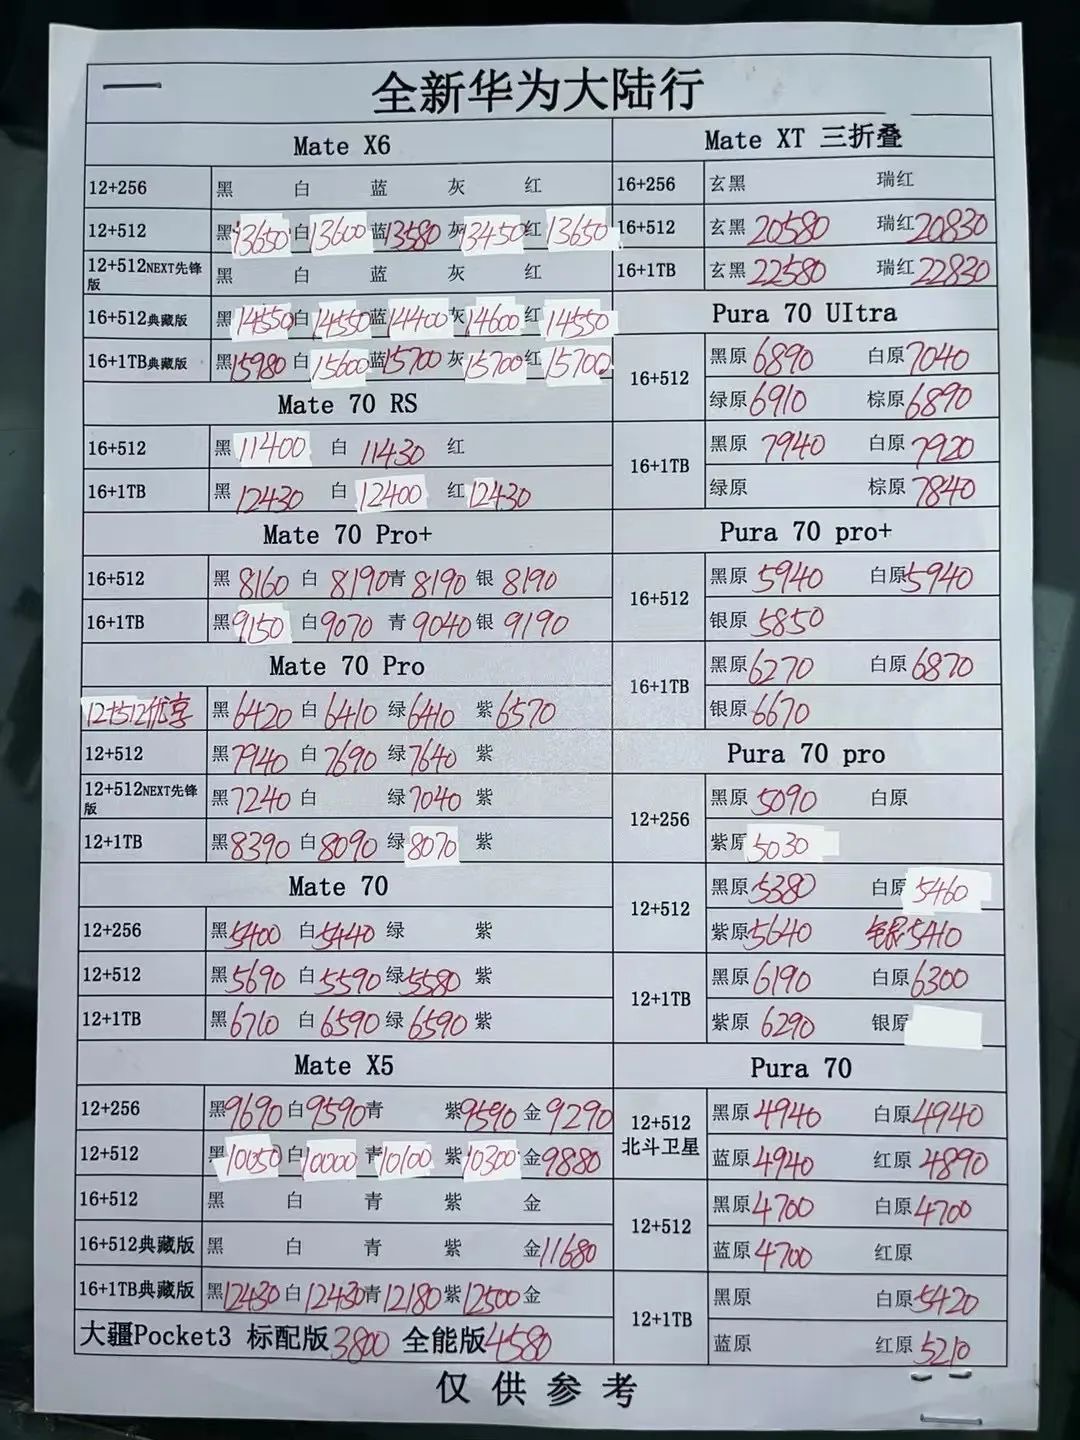 全新华为大陆行
Mate X6
12+256 黑 白 蓝 灰 红
12+512 黑13650 白13600 蓝13580 灰13450 红13650
12+512NEXT先锋版 黑 白 蓝 灰 红
16+512典藏版 黑14550 白14550 蓝14400 灰14600 红14550
16+1TB典藏版 黑15980 白15600 蓝15700 灰15700 红15700
Mate 70 RS
16+512 黑11400 白11430 红
16+1TB 黑12430 白12400 红12430
Mate 70 Pro+
16+512 黑8160 白8190 青8190 银8190
16+1TB 黑9150 白9070 青9040 银9190
Mate 70 Pro
12+512优享 黑6420 白6410 绿6410 紫6570
12+512 黑7940 白7690 绿7640 紫
12+512NEXT先锋版 黑7240 白 绿7040 紫
12+1TB 黑8390 白8090 绿8070 紫
Mate 70
12+256 黑5400 白5440 绿 紫
12+512 黑5690 白5590 绿5580 紫
12+1TB 黑6710 白6590 绿6590 紫
Mate X5
12+256 黑9690 白9590 青 紫9590 金9290
12+512 黑10050 白10000 青10100 紫10300 金9880
16+512 黑 白 青 紫 金
16+512典藏版 黑 白 青 紫 金11680
16+1TB典藏版 黑12430 白12430 青12180 紫12500 金
大疆Pocket3 标配版3800 全能版4580
Mate XT 三折叠
16+256 玄黑 瑞红
16+512 玄黑20580 瑞红20830
16+1TB 玄黑22580 瑞红22830
Pura 70 UItra
16+512 黑原6890 白原7040
绿原6910 棕原6890
16+1TB 黑原7940 白原7920
绿原 棕原7840
Pura 70 pro+
16+512 黑原5940 白原5940
银原5850
16+1TB 黑原6270 白原6870
银原6670
Pura 70 pro
12+256 黑原5090 白原
紫原5030
12+512 黑原5380 白原5460
紫原5640 银5410
12+1TB 黑原6190 白原6300
紫原6290 银原
Pura 70
12+512北斗卫星 黑原4940 白原4940
蓝原4940 红原4890
12+512 黑原4700 白原4700
蓝原4700 红原
12+1TB 黑原 白原5420
蓝原 红原5210
仅供参考